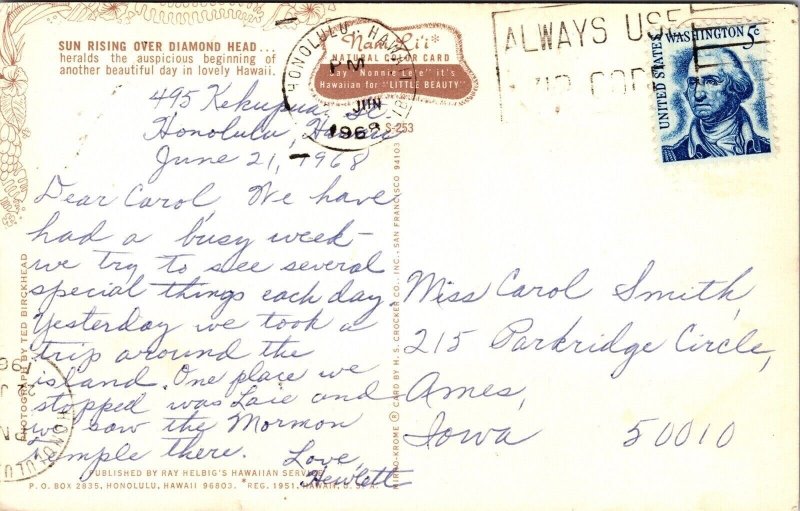 SUN RISING OVER DIAMOND HEAD...
heralds the auspicious beginning of
another beautiful day in lovely Hawaii.
Nani Li'i*
NATURAL COLOR CARD
Say "Nonnie Lee" it's
Hawaiian for "LITTLE BEAUTY"
S-253
HONOLULU, HAWAII
PM
JUN
1968
ALWAYS USE
ZIP CODE
UNITED STATES
WASHINGTON 5c
495
Honolulu, Hawaii
June 21, 1968
Dear Carol, We have
had a busy week-
we try to see several
special things each day.
Yesterday we took a
trip around the
island. One place we
stopped was Laie and
we saw the Mormon
Temple there.
Love,
Hewlett
Miss Carol Smith,
215 Parkridge Circle,
Ames,
Iowa 50010
PHOTOGRAPH BY TED BIRCKHEAD
MIRRO-KROME ® CARD BY H. S. CROCKER CO., INC., SAN FRANCISCO 94103
PUBLISHED BY RAY HELBIG'S HAWAIIAN SERVICE
P.O. BOX 2835, HONOLULU, HAWAII 96803. *REG. 1951, HAWAII, U.S.A.
HONOLULU